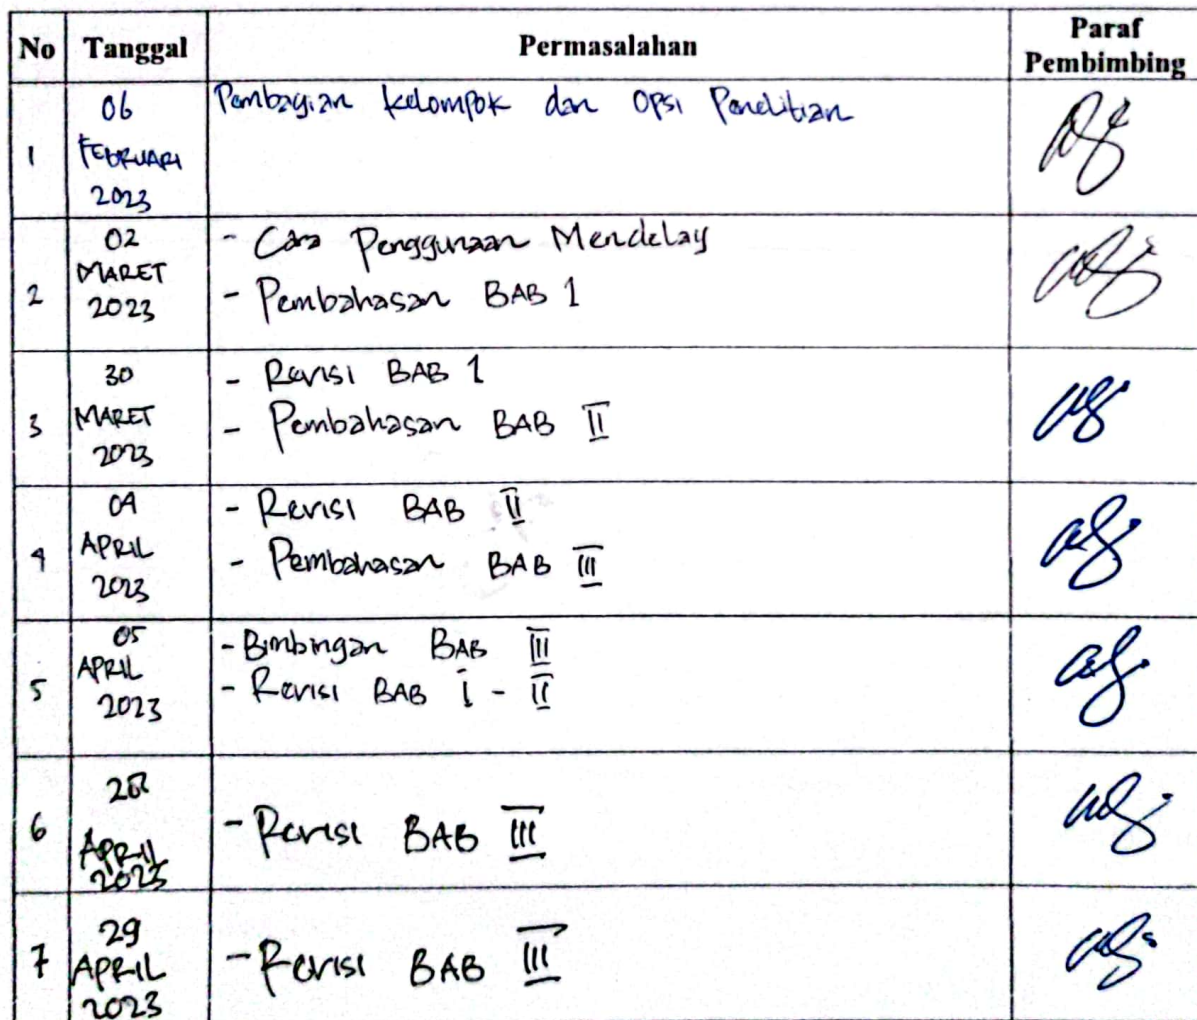 No Tanggal Permasalahan Paraf Pembimbing
1 06 FEBRUARI 2023 Pembagian kelompok dan Opsi Penelitian
2 02 MARET 2023 - Cara Penggunaan Mendelay
- Pembahasan BAB 1
3 30 MARET 2023 - Revisi BAB 1
- Pembahasan BAB II
4 04 APRIL 2023 - Revisi BAB II
- Pembahasan BAB III
5 05 APRIL 2023 - Bimbingan BAB III
- Revisi BAB I - II
6 APRIL 2023 - Revisi BAB III
7 29 APRIL 2023 - Revisi BAB III